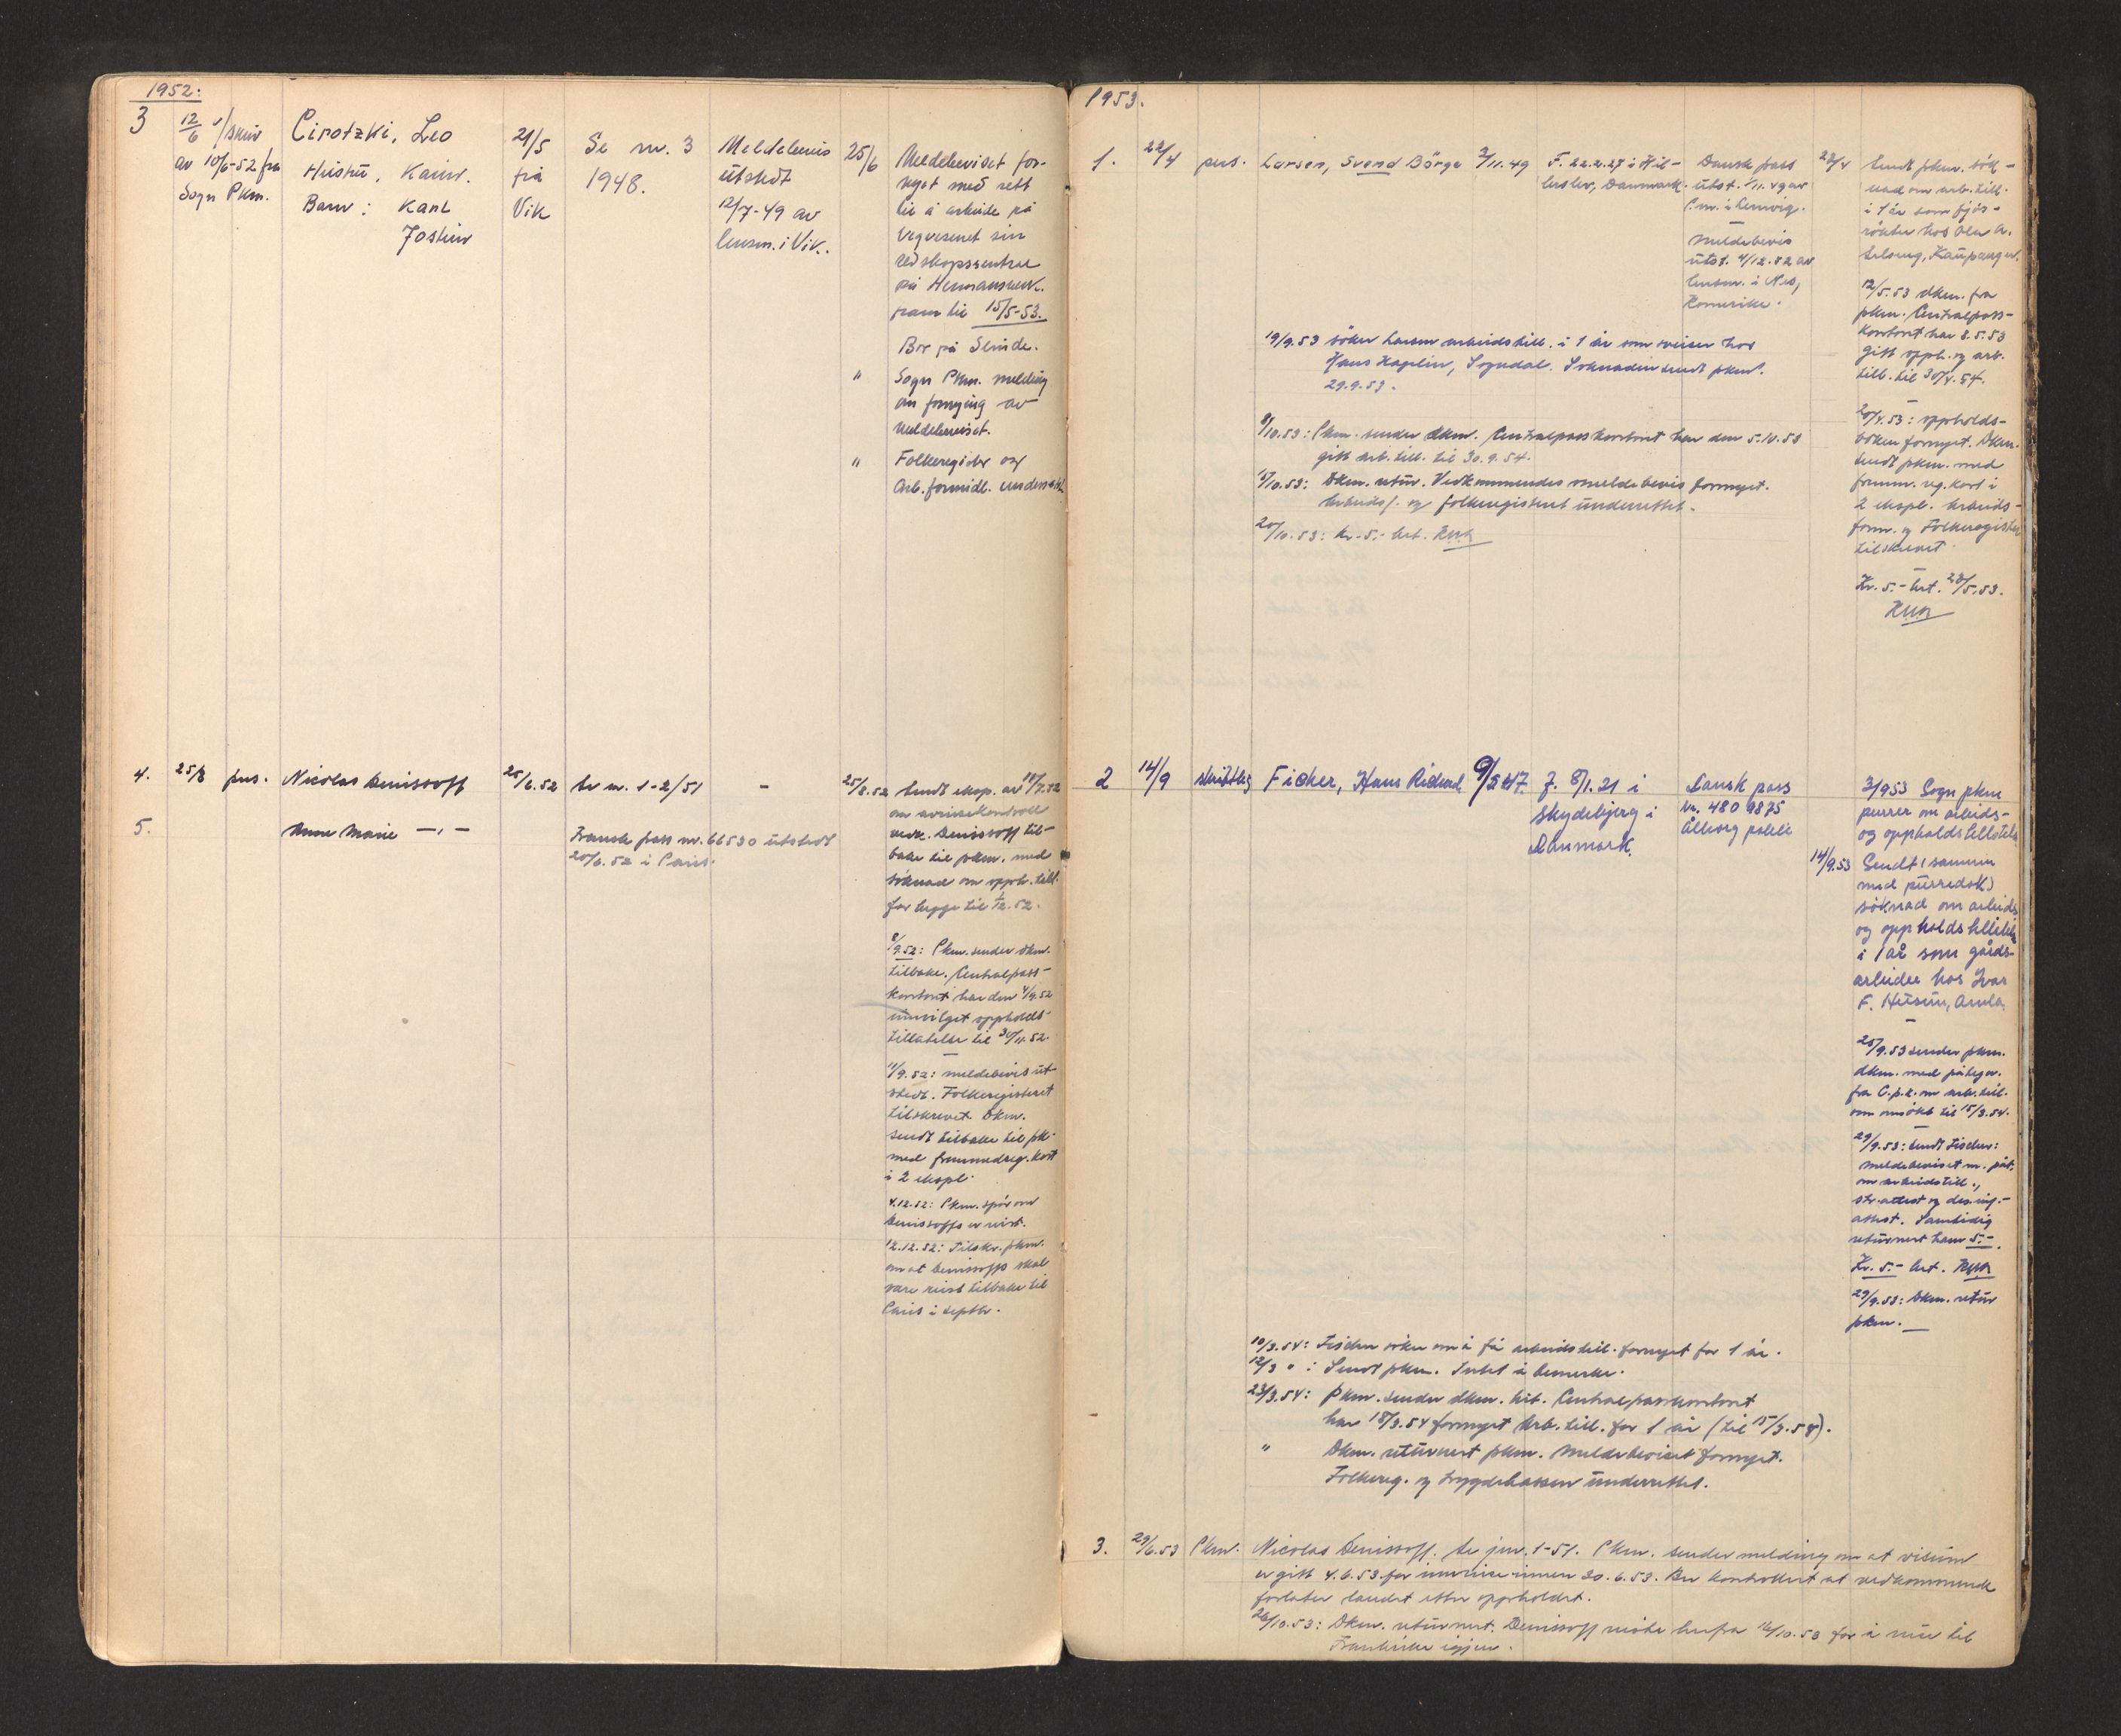 1952:
3
12/6 v/skriv
av 10/6-52 fra
Sogn Pkm.
Cirotzki, Leo
Hustru, Karin.
Barn: Karl
Jostein
21/5
frå
Vik
Se nr. 3
1948.
Meldebevis
utstedt
12/7-49 av
lensm. i Vik.
25/6
Meldebeviset for-
nyet med rett
til å arbeide på
Vegvesenet sin
redskapssentral
på Hermansverk.
fram til 15/5-53.
Bor på Slinde.
" Sogn Pkm. melding
om fornying av
meldebeviset.
" Folkeregister og
Arb.formidl. underrettet
4. 25/8 pers. Nicolas Denissoff 25/6.52 Se nr. 1-2/51 -
5. Anne Marie -"-
Fransk pass nr. 66530 utstedt
20/6.52 i Paris.
25/8.52 Sendt eksp. av 18/7.52
om avreisekontroll
vedk. Denissoff til-
bake til pkm. med
søknad om opph.till.
for begge til 1/12.52.
8/9.52: Pkm. sender dkm.
tilbake. Centralpass-
kontoret har den 4/9.52
innvilget oppholds-
tillatelse til 30/11.52.
11/9.52: meldebevis ut-
stedt. Folkeregisteret
tilskrevet. Dkm.
sendt tilbake til pk-
med fremmedreg.kort
i 2 ekspl.
4.12.52: Pkm. spør om
Denissoffs er reist.
12.12.52: Tilskr. pkm.
om at Denissoffs skal
være reist tilbake til
Paris i septbr.
1953.
1. 22/4 pers. Larsen, Svend Börge 2/11.49
F. 22.2.27 i Hil-
lerslev, Danmark.
Dansk pass
utst. 1/11.49 av
P.m. i Lemvig.
meldebevis
utst. 4/12.52 av
lensm. i Nes,
Romerike.
22/4 Sendt pkm. søk-
nad om arb.till.
i 1 år som fjøs-
røkter hos Olav A.
Kaupanger.
12/5.53 dkm. fra
pkm. Centralpass-
kontoret har 8.5.53
gitt opph. og arb.
till. til 30/4.54.
20/5.53: oppholds-
boken fornyet. Dkm.
sendt pkm. med
fremm. reg.kort i
2 ekspl. Arbeids-
form. og Folkeregister
tilskrevet.
Kr. 5.- bet. 28/5.53.
19/9.53 søker Larsen arbeidstill. i 1 år som sveiser hos
Hans Kaplin, Sogndal. Søknaden sendt pkm.
29.9.53.
8/10.53: Pkm. sender dkm. Centralpasskontoret har den 5.10.53
gitt arb.till. til 30.9.54.
15/10.53: Dkm. retur. Vedkommendes meldebevis fornyet.
Arbeidsf. og folkeregisteret underrettet.
20/10.53: Kr. 5.- bet.
2 14/9 skriftleg Ficker, Hans Richard 9/5 47.
f. 8/1.21 i
Skydebjerg i
Danmark.
Dansk pass
nr. 480 9875
Ålborg politi
3/953 Sogn pkm
purrer om arbeids-
og oppholdstillatelse
14/9.53 Sendt (sammen
med purredok)
søknad om arbeids
og oppholdstillatelse
i 1 år som gårds-
arbeider hos Ivar
F. Husum, Amla.
25/9.53 sender pkm.
dkm. med påtegn.
fra C.p.k. om arb.till.
som omsøkt til 15/3.54.
29/9.53: Sendt Fischer:
meldebeviset m. påt.
om arbeidstill.,
str.attest og des.inf.-
attest. Samtidig
returnert ham 5.-.
Kr. 5.- bet.
29/9.53: Dkm. retur
pkm.
10/3.54: Fischer søker om å få arbeidstill. fornyet for 1 år.
12/3 " : Sendt pkm. Intet å bemerke.
23/3.54: Pkm. sender dkm. hit. Centralpasskontoret
har 18/3.54 fornyet arb.till. for 1 år (til 15/3.55).
" Dkm. returnert pkm. Meldebeviset fornyet.
Folkereg. og trygdekassen underrettet.
3. 29/6.53 Pkm. Nicolas Denissoff. Se jnr. 1-51. Pkm. sender melding om at visum
er gitt 4.6.53 for innreise innen 30.6.53. Ber kontrollert at vedkommende
forlater landet etter oppholdet.
26/10.53: Dkm. returnert. Denissoff reiste herfra 16/10.53 for å reise til
Frankrike igjen.